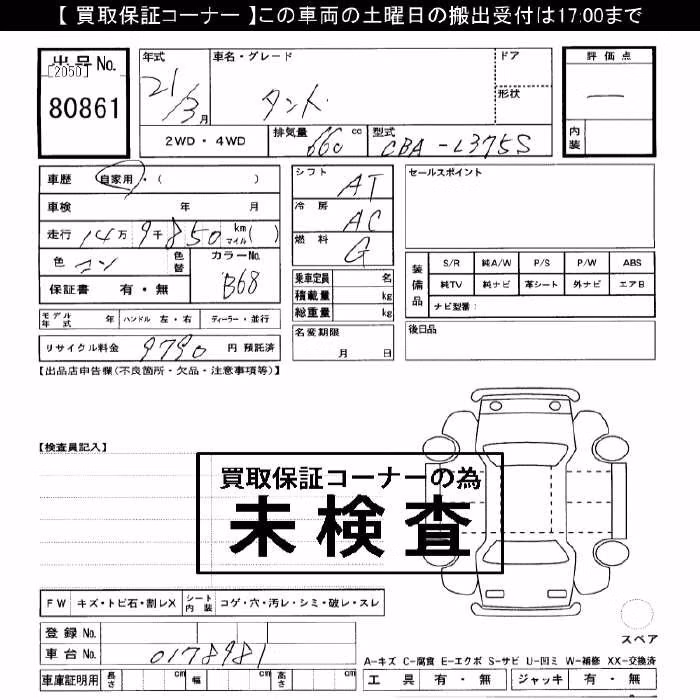 【 買取保証コーナー 】この車両の土曜日の搬出受付は17:00まで
出品No.
[2050]
80861
年式
21/3月
車名・グレード
タント
ドア
形状
評価点
—
内装
2WD・4WD
排気量 660 cc
型式 CBA-L375S
車歴 自家用・( )
車検 年 月
走行 14万9千850 km マイル ( )
色 コン 色替 カラーNo. B68
保証書 有・無
モデル年式 年 ハンドル 左・右 ディーラー・並行
リサイクル料金 9790 円 預託済
シフト AT
冷房 AC
燃料 G
乗車定員 名
積載量 kg
総重量 kg
名変期限
月 日
セールスポイント
装備品
S/R 純A/W P/S P/W ABS
純TV 純ナビ 革シート 外ナビ エアB
ナビ型番:
後日品
【出品店申告欄(不良箇所・欠品・注意事項等)】
【検査員記入】
買取保証コーナーの為
未検査
FW キズ・トビ石・割レX シート内装 コゲ・穴・汚レ・シミ・破レ・スレ
登録No.
車台No. 0178981
車庫証明用 長さ cm 幅 cm 高さ cm
スペア
A-キズ C-腐食 E-エクボ S-サビ U-凹ミ W-補修 XX-交換済
工具 有・無 ジャッキ 有・無